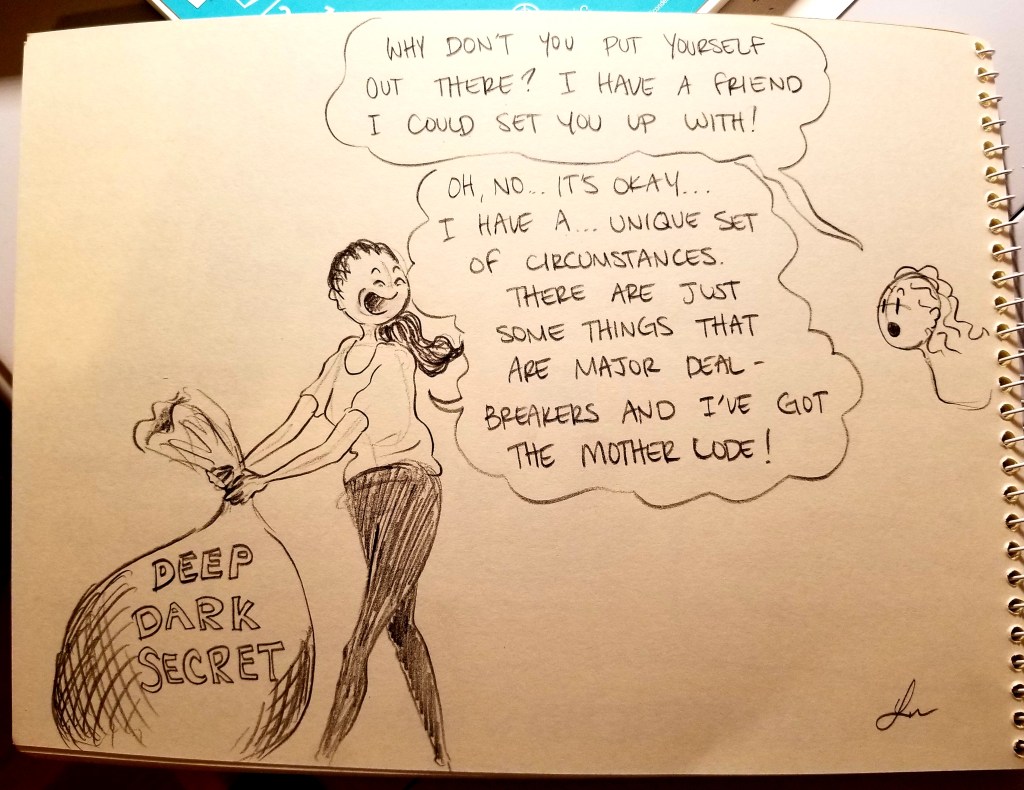 WHY DON'T YOU PUT YOURSELF
OUT THERE? I HAVE A FRIEND
I COULD SET YOU UP WITH!
OH, NO... IT'S OKAY...
I HAVE A... UNIQUE SET
OF CIRCUMSTANCES.
THERE ARE JUST
SOME THINGS THAT
ARE MAJOR DEAL-
BREAKERS AND I'VE GOT
THE MOTHER LODE!
DEEP
DARK
SECRET